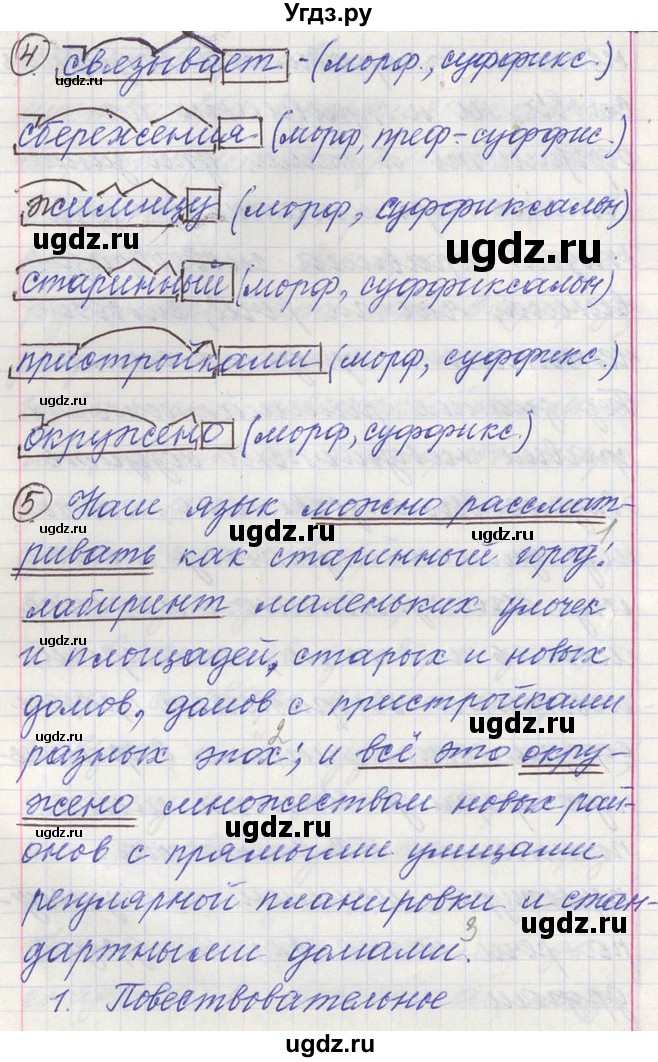 Угдз.ру
4. связывает - (морф., суффикс.)
сбережения (морф, преф-суффис.)
жимницу (морф, суффиксальн)
ugdz.ru
ugdz.ru
старинный (морф, суффиксальн)
пристройками (морф, суффикс.)
ugdz.ru
окружено (морф, суффикс.)
5 Наш язык можно рассмат-
ugdz.ru
ugdz.ru
1
ривать как старинный город:
ugdz.ru
лабиринт маленьких улочек
ugdz.ru
и площадей, старых и новых
ugdz.ru
домов, домов с пристройками
2
разных эпох; и всё это окру-
ugdz.ru
жено множеством новых рай-
ugdz.ru
ugdz.ru
онов с прямыми улицами
регулярной планировки и стан-
ugdz.ru
ugdz.ru
3
дартными домами.
ugdz.ru
1. Повествовательное
ugdz.ru
ugdz.ru